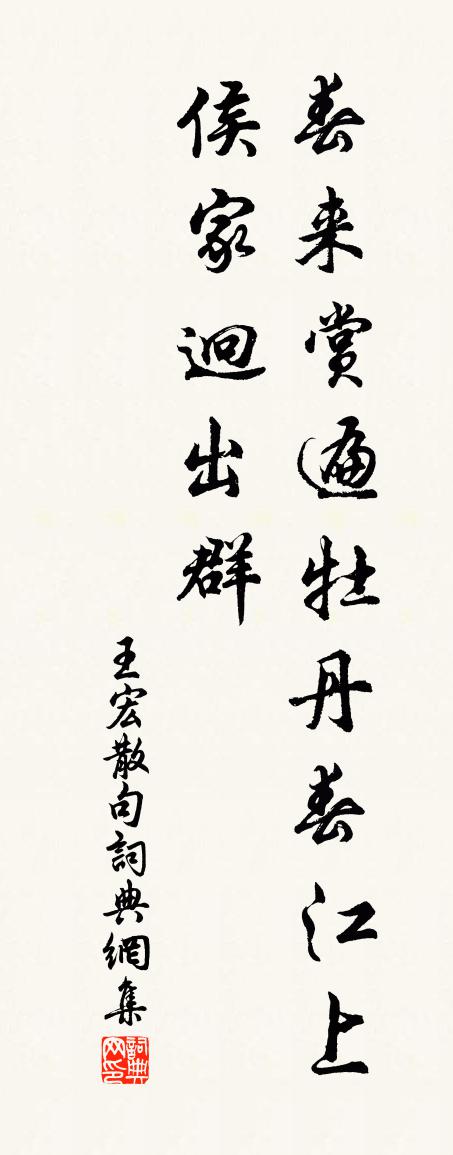 春来賞遍牡丹春江上
侯家迥出群
王宏散句詞典網集
詞典网印